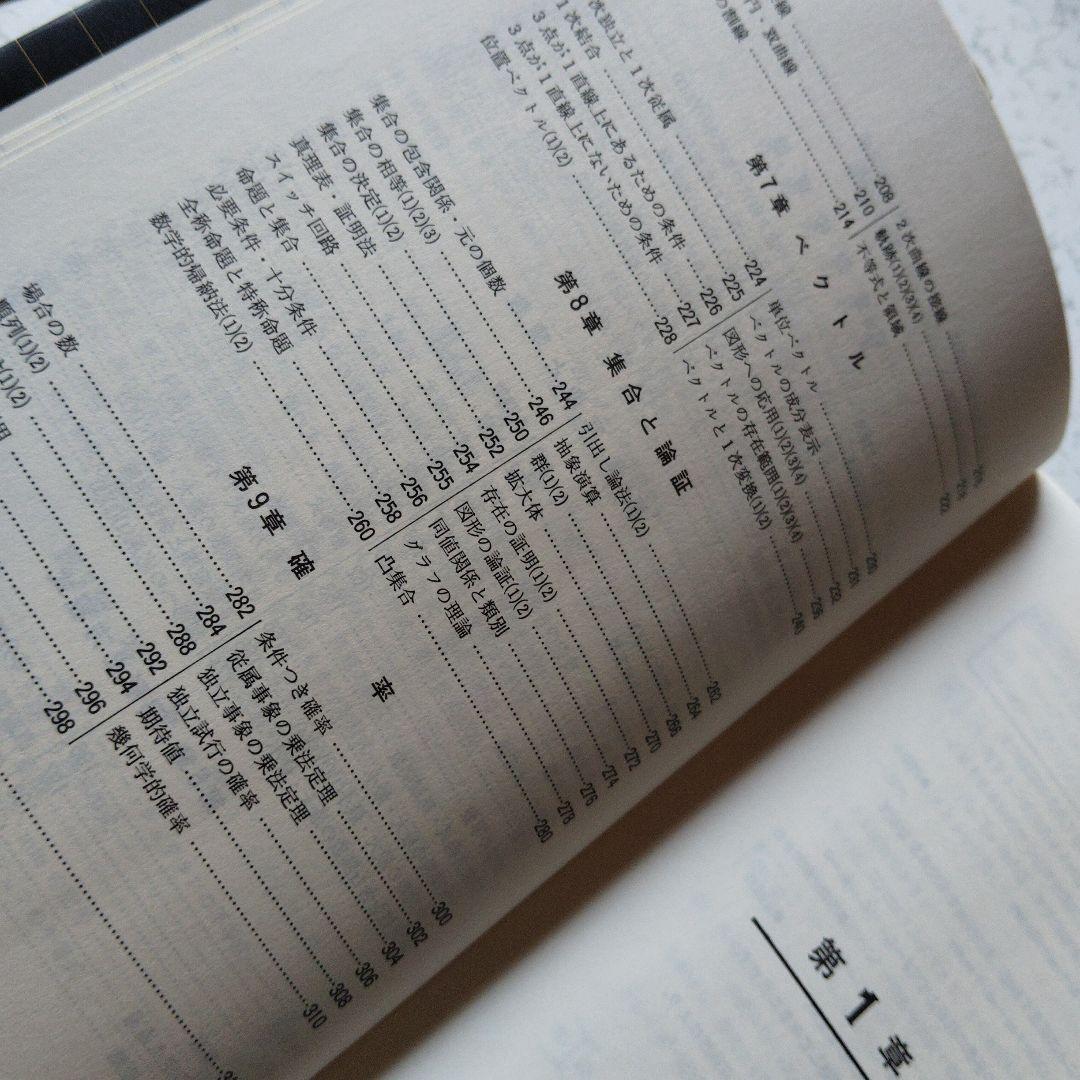 208
210
214
2次曲線の接線
軌跡(1)(2)(3)(4)
不等式と領域
第7章 ベクトル
次独立と1次従属……224
1次結合……225
3点が1直線上にあるための条件……226
3点が1直線上にないための条件……227
位置ベクトル(1)(2)……228
単位ベクトル
ベクトルの成分表示
図形への応用(1)(2)(3)(4)……232
ベクトルの存在範囲(1)(2)(3)(4)……236
ベクトルと1次変換(1)(2)……240
第8章 集合と論証
集合の包含関係・元の個数……244
集合の相等(1)(2)(3)……246
集合の決定(1)(2)……250
真理表・証明法……252
スイッチ回路……254
命題と集合……255
必要条件・十分条件……256
全称命題と特称命題……258
数学的帰納法(1)(2)……260
引出し論法(1)(2)……262
抽象演算……264
群(1)(2)……266
拡大体……270
存在の証明(1)(2)……272
図形の論証(1)(2)……274
同値関係と類別……276
グラフの理論……278
凸集合……280
第9章 確率
場合の数……282
順列(1)(2)……284
288
292
294
296
298
条件つき確率……300
従属事象の乗法定理……302
独立事象の乗法定理……304
独立試行の確率……306
期待値……308
幾何学的確率……310
第1章